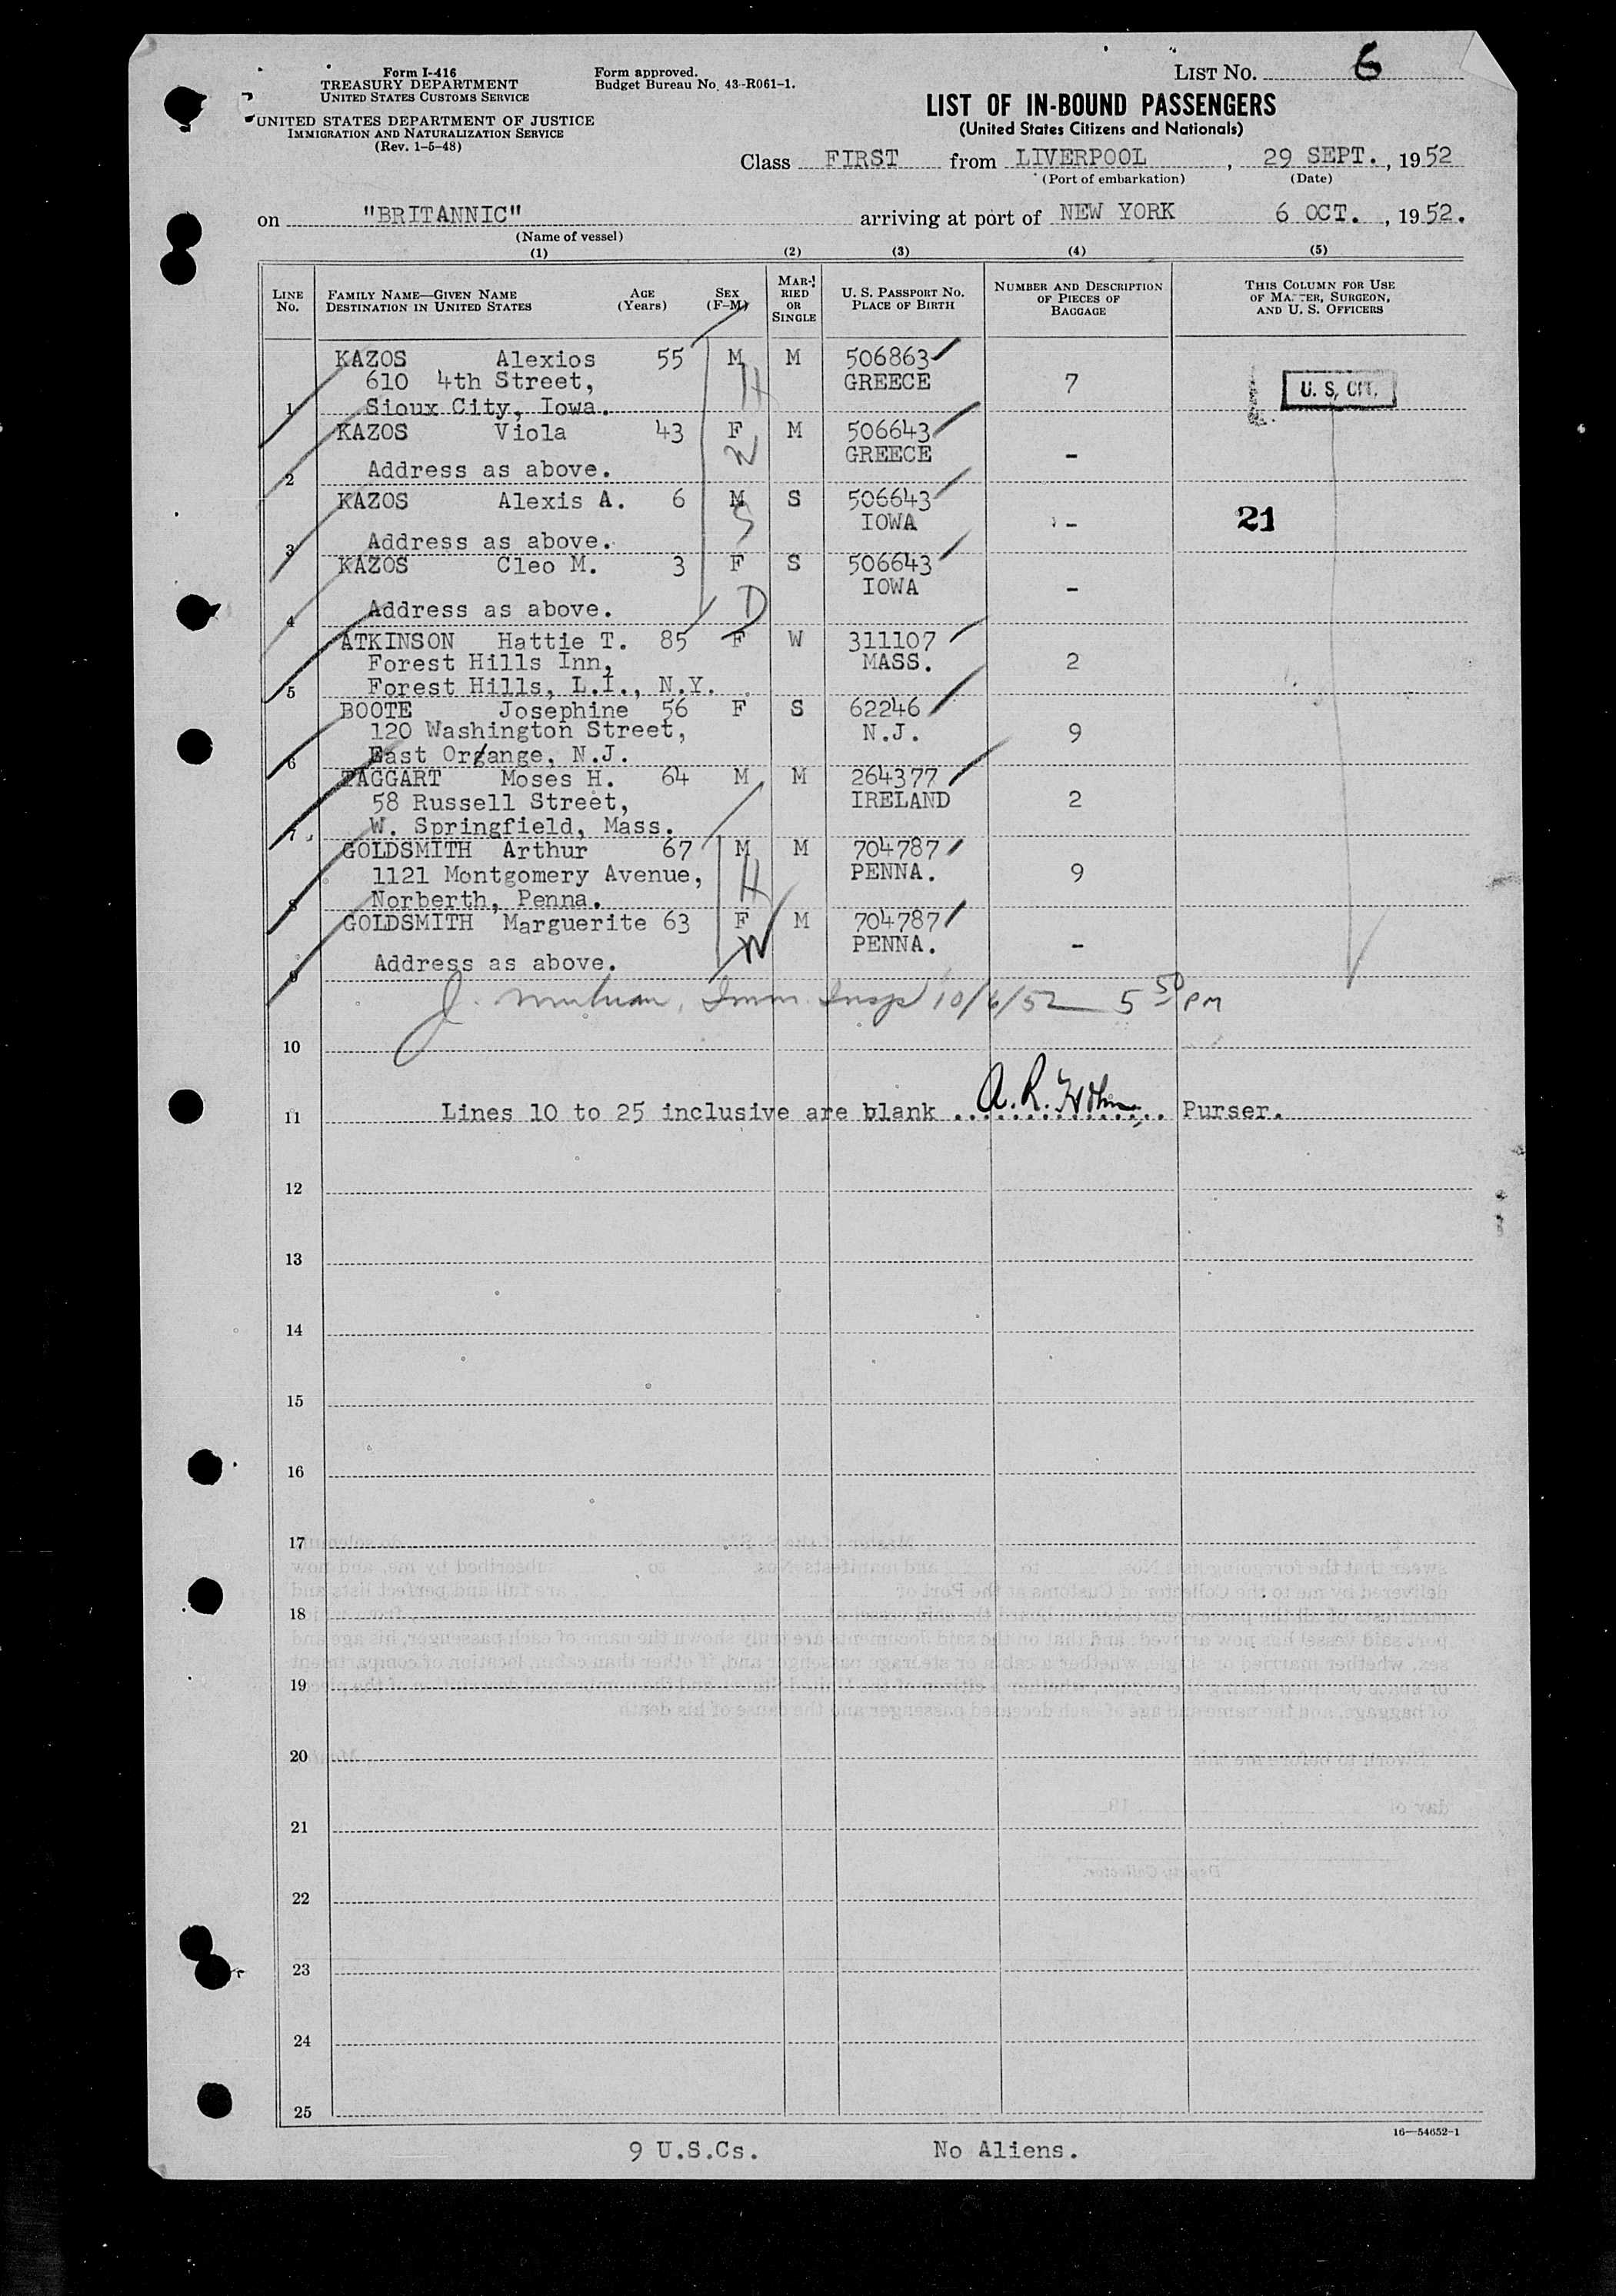 Form I-416
TREASURY DEPARTMENT
UNITED STATES CUSTOMS SERVICE
UNITED STATES DEPARTMENT OF JUSTICE
IMMIGRATION AND NATURALIZATION SERVICE
(Rev. 1-5-48)
Form approved.
Budget Bureau No. 43-R061-1.
LIST NO. 6
LIST OF IN-BOUND PASSENGERS
(United States Citizens and Nationals)
Class FIRST from LIVERPOOL, 29 SEPT., 1952
(Port of embarkation) (Date)
on "BRITANNIC" arriving at port of NEW YORK 6 OCT., 1952.
(Name of vessel)
(1) (2) (3) (4) (5)
LINE NO.
FAMILY NAME—GIVEN NAME DESTINATION IN UNITED STATES
AGE (Years)
SEX (F-M)
MARRIED OR SINGLE
U. S. PASSPORT NO. PLACE OF BIRTH
NUMBER AND DESCRIPTION OF PIECES OF BAGGAGE
THIS COLUMN FOR USE OF MASTER, SURGEON, AND U. S. OFFICERS
KAZOS Alexios 55 M M 506863
610 4th Street, H GREECE 7 U. S. CIT.
1 Sioux City, Iowa.
KAZOS Viola 43 F M 506643
W GREECE -
2 Address as above.
KAZOS Alexis A. 6 M S 506643
S IOWA - 21
3 Address as above.
KAZOS Cleo M. 3 F S 506643
IOWA -
4 Address as above. D
ATKINSON Hattie T. 85 F W 311107
Forest Hills Inn, MASS. 2
5 Forest Hills, L.I., N.Y.
BOOTE Josephine 56 F S 62246
120 Washington Street, N.J. 9
6 East Orange, N.J.
TAGGART Moses H. 64 M M 264377
58 Russell Street, IRELAND 2
7 W. Springfield, Mass.
GOLDSMITH Arthur 67 M M 704787
1121 Montgomery Avenue, H PENNA. 9
8 Norberth, Penna.
GOLDSMITH Marguerite 63 F M 704787
W PENNA. -
9 Address as above.
J. Imm. Insp 10/6/52 5 50 PM
10
11 Lines 10 to 25 inclusive are blank A. R. Purser.
12
13
14
15
16
17
18
19
20
21
22
23
24
25
16—54652-1
9 U.S.Cs. No Aliens.